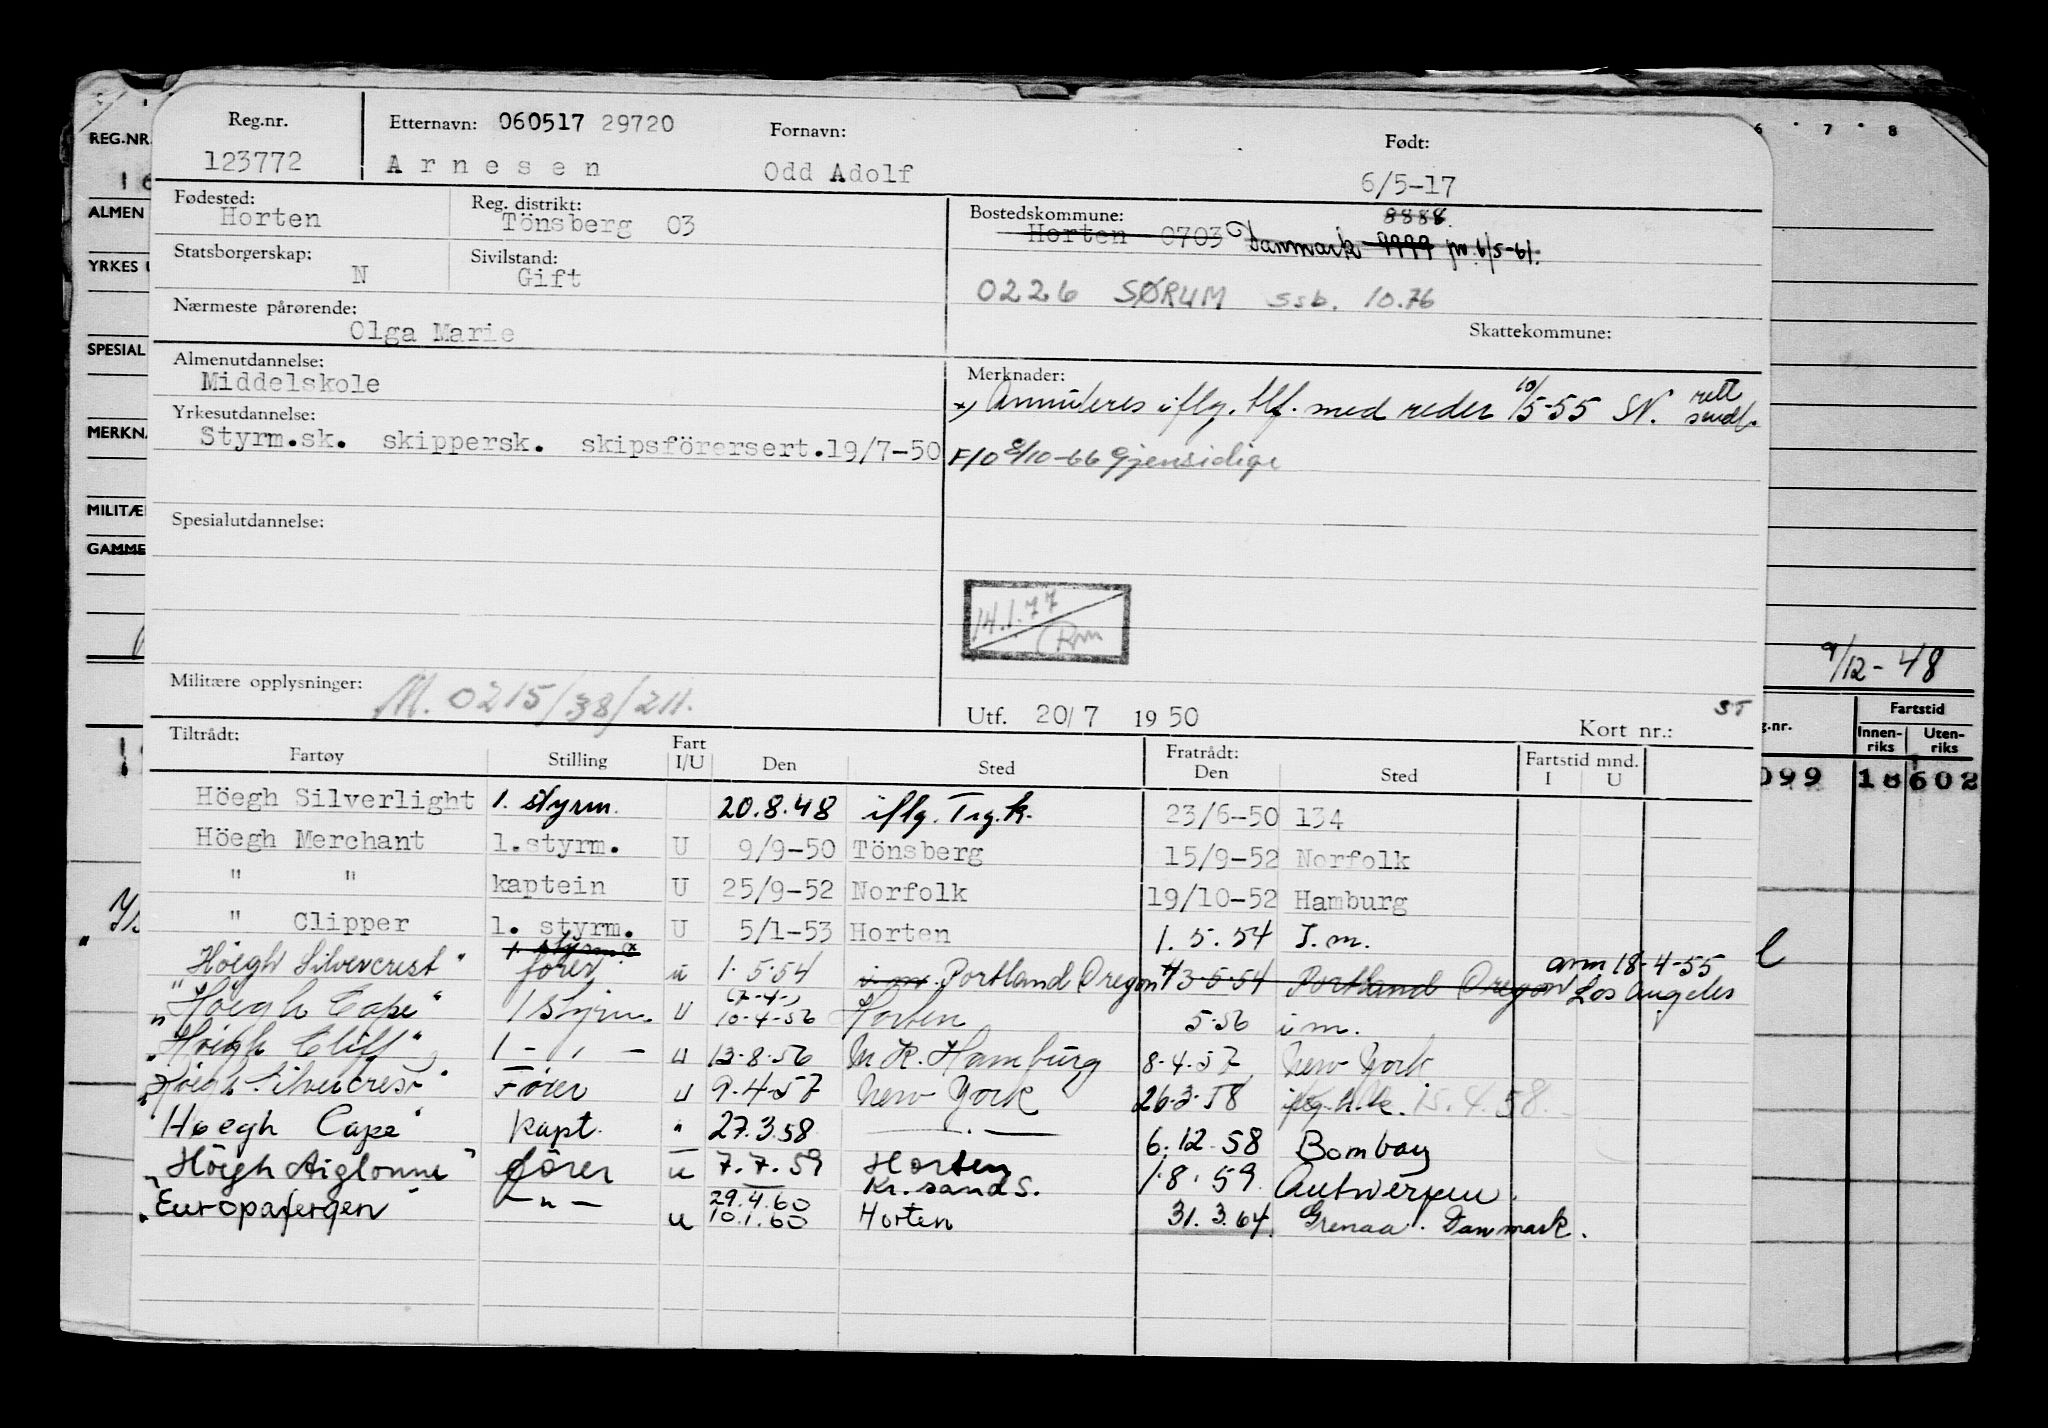 Reg.nr. Etternavn: 060517 29720 Fornavn: Født:
123772 Arnesen Odd Adolf 6/5-17
Fødested: Reg. distrikt: Bostedskommune: 8888
Horten Tönsberg 03 Horten 0703 Danmark 9999 pr. 6/5-61.
Statsborgerskap: Sivilstand:
N Gift 0226 SØRUM ssb. 10.76
Nærmeste pårørende: Skattekommune:
Olga Marie
Almenutdannelse: Merknader:
Middelskole x) Annuleres iflg. tlf. med reder 10/5-55 SN. rett sendt.
Yrkesutdannelse:
Styrm.sk. skippersk. skipsförersert.19/7-50 F10 8/10-66 Gjensidige
Spesialutdannelse:
14.1.77
Rm
Militære opplysninger: M. 0215/38/211.
Utf. 20/7 1950 Kort nr.: ST
Tiltrådt: Fratrådt:
Fartøy Stilling Fart I/U Den Sted Den Sted Fartstid mnd. I U
Höegh Silverlight 1. styrm. 20.8.48 iflg. Trg.k. 23/6-50 134
Höegh Merchant 1.styrm. U 9/9-50 Tönsberg 15/9-52 Norfolk
" " kaptein U 25/9-52 Norfolk 19/10-52 Hamburg
" Clipper 1. styrm. U 5/1-53 Horten 1.5.54 I.m.
"Höegh Silvercrest" 1. styrm. x fører u 1.5.54 i.m. Portland Oregon 3-5-54 Portland Oregon ann 18-4-55 Los Angeles
"Höegh Cape" 1 styrm. u 10-4-56 Horten 5.56 i m.
"Höegh Cliff" 1 - " - u 13-8-56 M. K. Hamburg 8-4-57 New York
"Höegh Silvercrest" Fører u 9-4-57 New York 26-3-58 iflg. h.k. 15.4.58.
"Høegh Cape" kapt. " 27.3.58 — . — 6.12.58 Bombay
"Höegh Aiglonne" fører u 7.7.59 Horten 1.8.59 Antwerpen.
"Europafergen" — " — 29.4.60 Kr.sand S.
u 10.1.60 Horten 31.3.64. Grenaa. Danmark.
REG.NR.
ALMEN
YRKES
SPESIAL
MERKNA
MILITÆ
GAMME
6 7 8
9/12-48
g.nr. Fartstid
Innenriks Utenriks
099 18 602